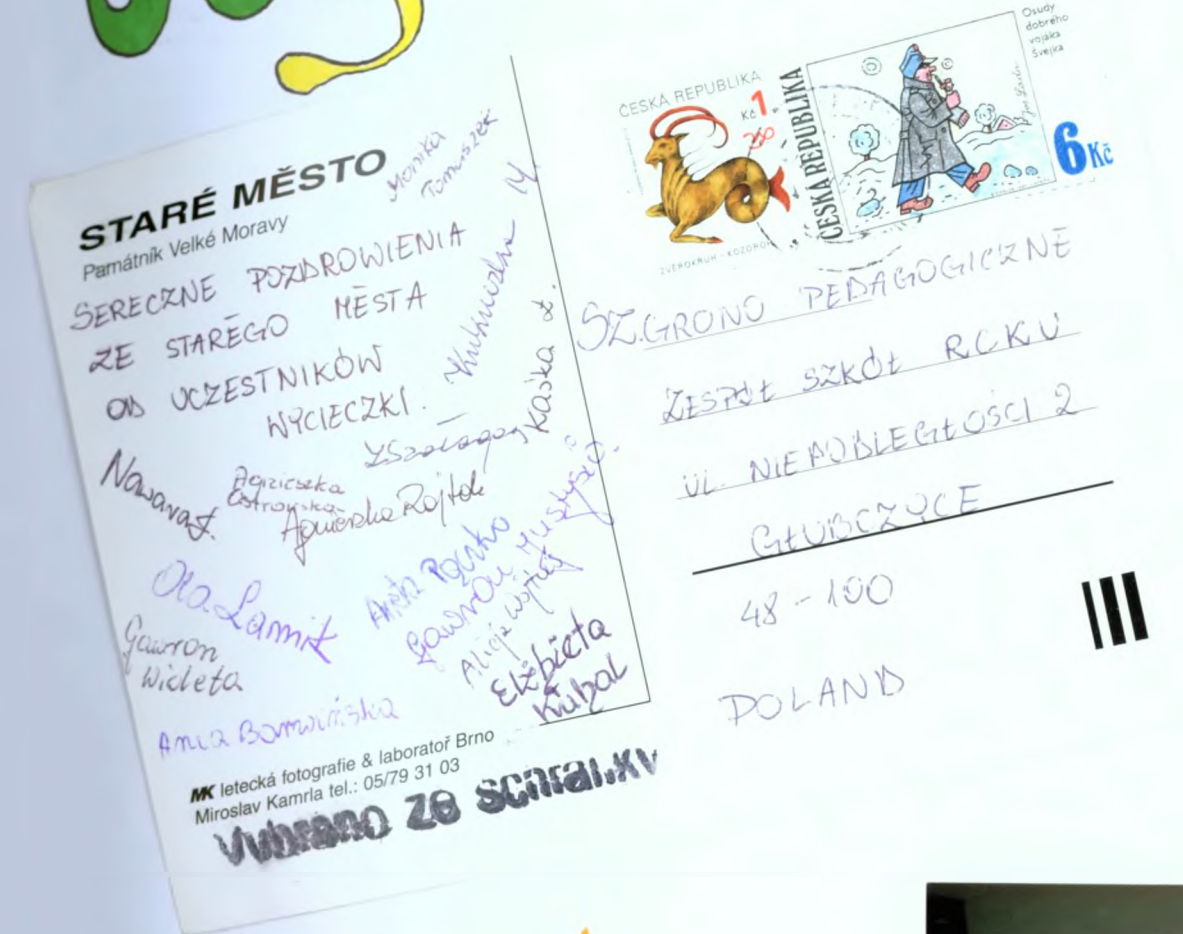 STARÉ MĚSTO
Památník Velké Moravy
SERECZNE POZDROWIENIA
ZE STAREGO MĚSTA
OD UCZESTNIKÓW
WYCIECZKI.
Monika
Tomaszek
Kaśka
Agnieszka
Ostrowska
Agnieszka Rojtek
Ola Lamik
Gawron
Wioleta
Aneta
Gawron
Alicja
Elżbieta
Kubal
Ania
MK letecká fotografie & laboratoř Brno
Miroslav Kamrla tel.: 05/79 31 03
Vybráno ze schránky
ČESKÁ REPUBLIKA
Kč 1
ZVĚROKRUH - KOZOROH
ČESKÁ REPUBLIKA
Osudy
dobrého
vojáka
Švejka
6 Kč
SZ. GRONO PEDAGOGICZNE
ZESPÓŁ SZKÓŁ RCKU
UL. NIEPODLEGŁOŚCI 2
GŁUBCZYCE
48-100
POLAND